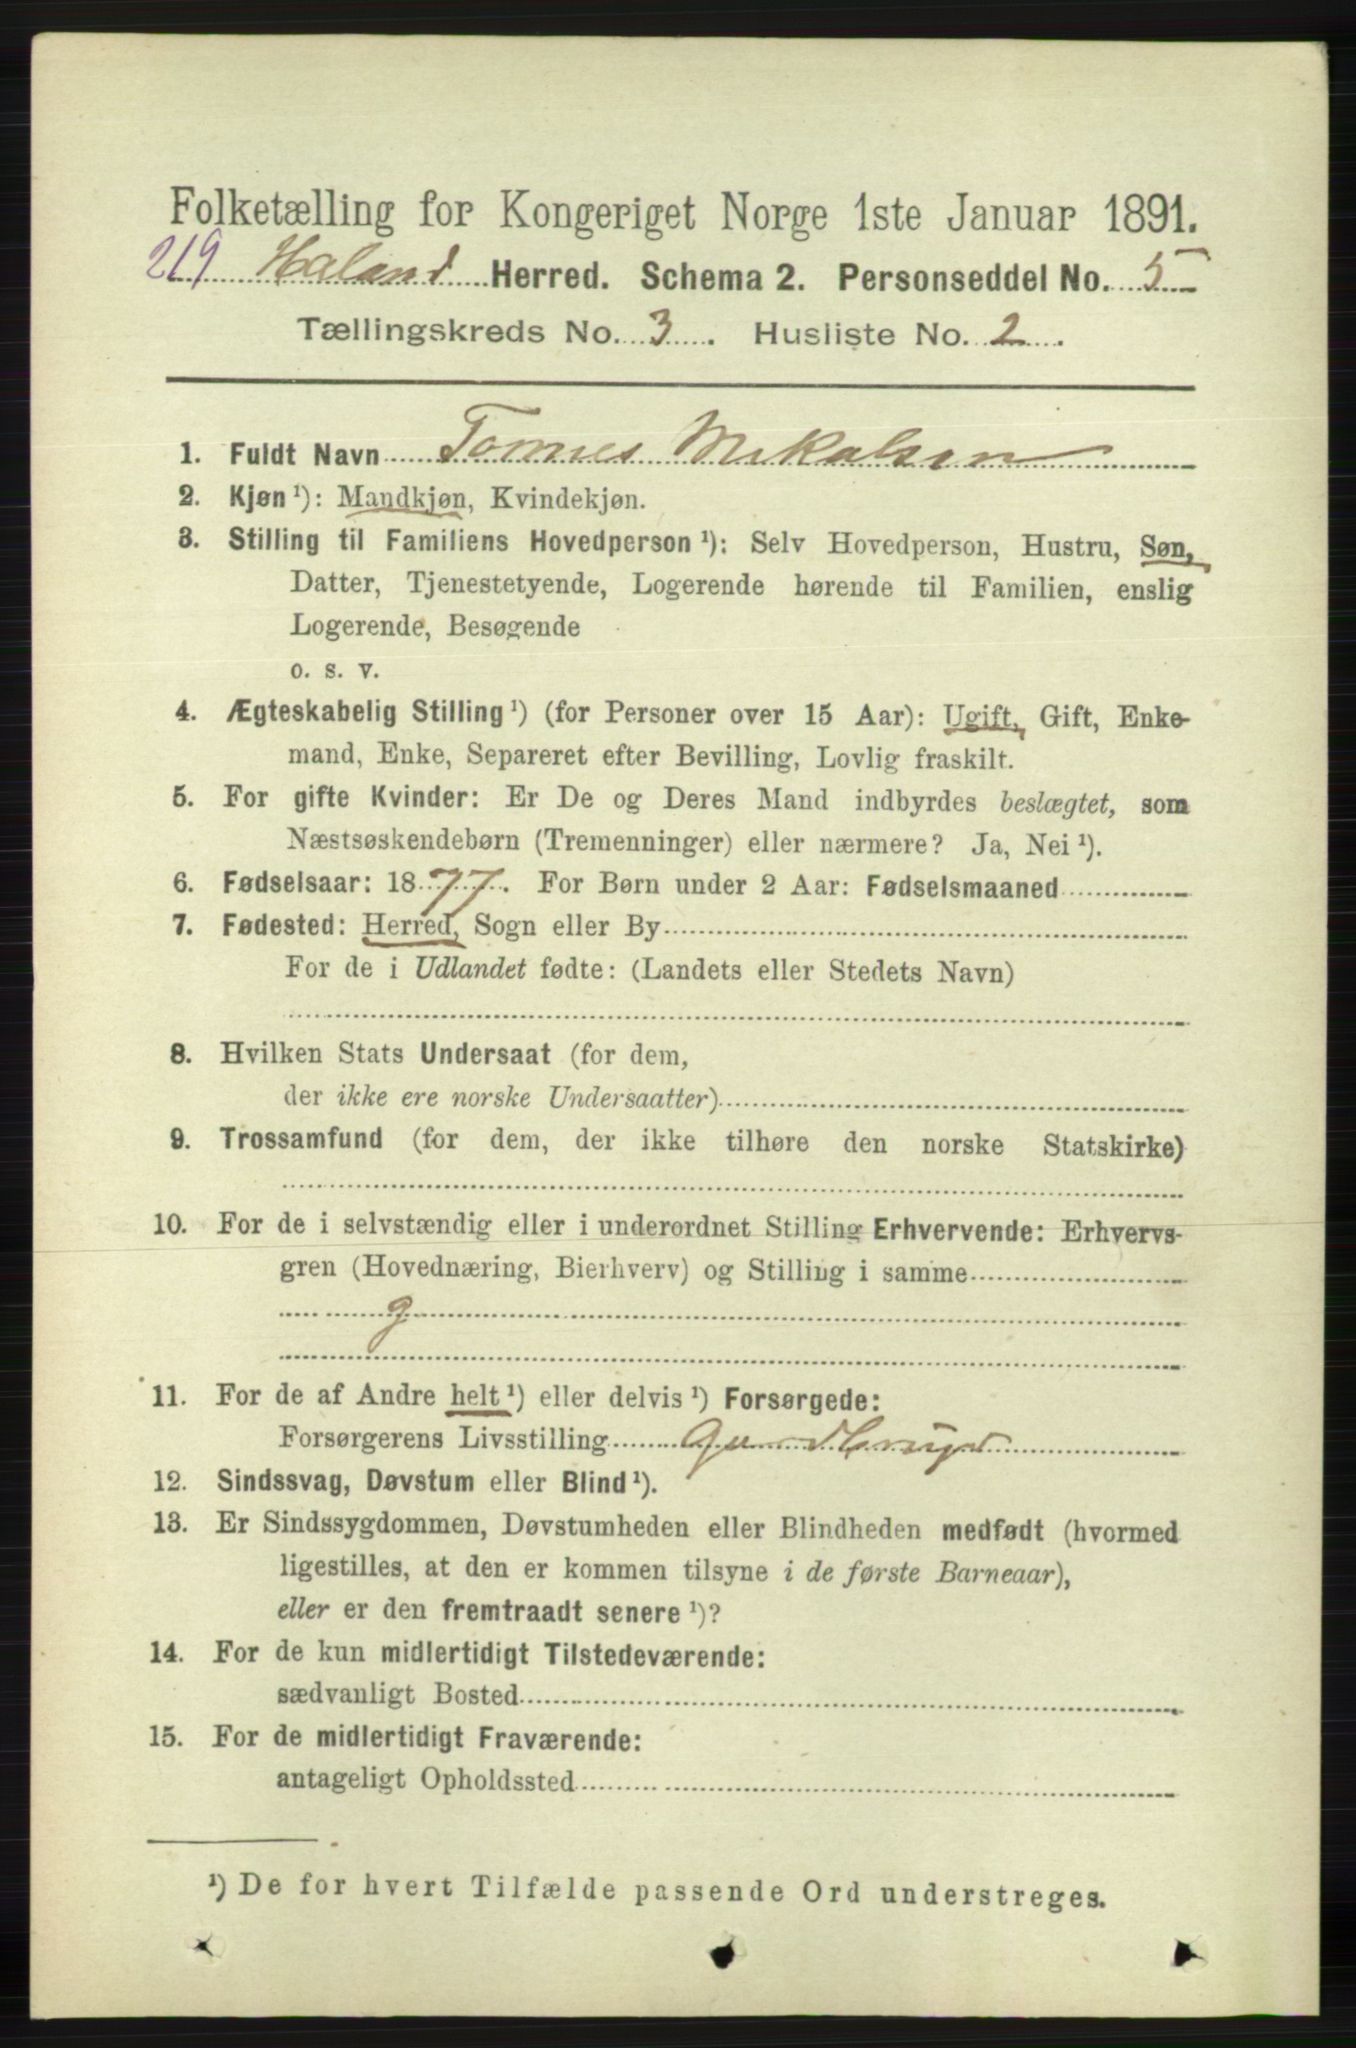 Folketælling for Kongeriget Norge 1ste Januar 1891.
219 Haland Herred. Schema 2. Personseddel No. 5
Tællingskreds No. 3. Husliste No. 2.
1. Fuldt Navn Tomies Mikalsen
2. Kjøn ¹): Mandkjøn, Kvindekjøn.
3. Stilling til Familiens Hovedperson ¹): Selv Hovedperson, Hustru, Søn,
Datter, Tjenestetyende, Logerende hørende til Familien, enslig
Logerende, Besøgende
o. s. v.
4. Ægteskabelig Stilling ¹) (for Personer over 15 Aar): Ugift, Gift, Enke-
mand, Enke, Separeret efter Bevilling, Lovlig fraskilt.
5. For gifte Kvinder: Er De og Deres Mand indbyrdes beslægtet, som
Næstsøskendebørn (Tremenninger) eller nærmere? Ja, Nei ¹).
6. Fødselsaar: 1877. For Børn under 2 Aar: Fødselsmaaned
7. Fødested: Herred, Sogn eller By
For de i Udlandet fødte: (Landets eller Stedets Navn)
8. Hvilken Stats Undersaat (for dem,
der ikke ere norske Undersaatter)
9. Trossamfund (for dem, der ikke tilhøre den norske Statskirke)
10. For de i selvstændig eller i underordnet Stilling Erhvervende: Erhvervs-
gren (Hovednæring, Bierhverv) og Stilling i samme
g
11. For de af Andre helt ¹) eller delvis ¹) Forsørgede:
Forsørgerens Livsstilling
12. Sindssvag, Døvstum eller Blind ¹).
13. Er Sindssygdommen, Døvstumheden eller Blindheden medfødt (hvormed
ligestilles, at den er kommen tilsyne i de første Barneaar),
eller er den fremtraadt senere ¹)?
14. For de kun midlertidigt Tilstedeværende:
sædvanligt Bosted
15. For de midlertidigt Fraværende:
antageligt Opholdssted
¹) De for hvert Tilfælde passende Ord understreges.